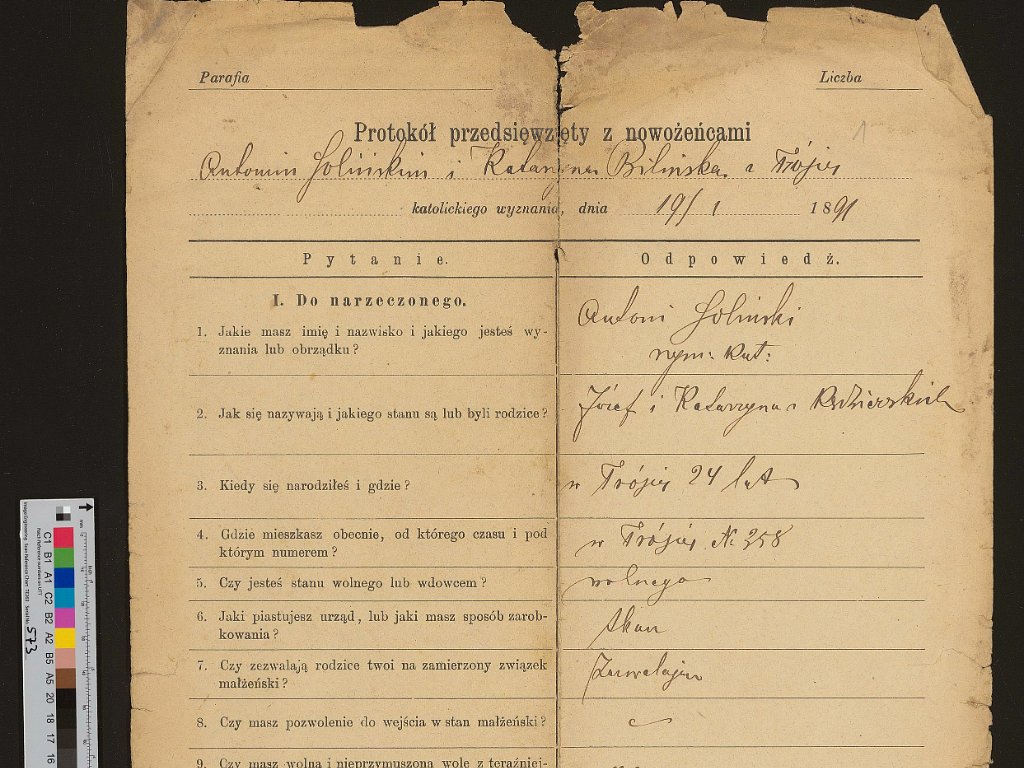 Parafia Liczba
Protokół przedsięwzięty z nowożeńcami 1
Antonim Solińskim i Katarzyna Bilińska z Trójcy
katolickiego wyznania, dnia 19/1 1891
Pytanie. Odpowiedź.
I. Do narzeczonego.
Antoni Soliński
1. Jakie masz imię i nazwisko i jakiego jesteś wy-
znania lub obrządku?
rzym: kat:
2. Jak się nazywają i jakiego stanu są lub byli rodzice? Józef i Katarzyna z
3. Kiedy się narodziłeś i gdzie? w Trójcy 24 lat
4. Gdzie mieszkasz obecnie, od którego czasu i pod
którym numerem? w Trójcy № 258
5. Czy jesteś stanu wolnego lub wdowcem? wolnego
6. Jaki piastujesz urząd, lub jaki masz sposób zarob-
kowania?
7. Czy zezwalają rodzice twoi na zamierzony związek
małżeński? Zezwalają
8. Czy masz pozwolenie do wejścia w stan małżeński?
9. Czy masz wolną i nieprzymuszoną wolę z teraźniej-
573
C1 B1 A1 C2 B2 A2 B5 A5 20 18 17 16